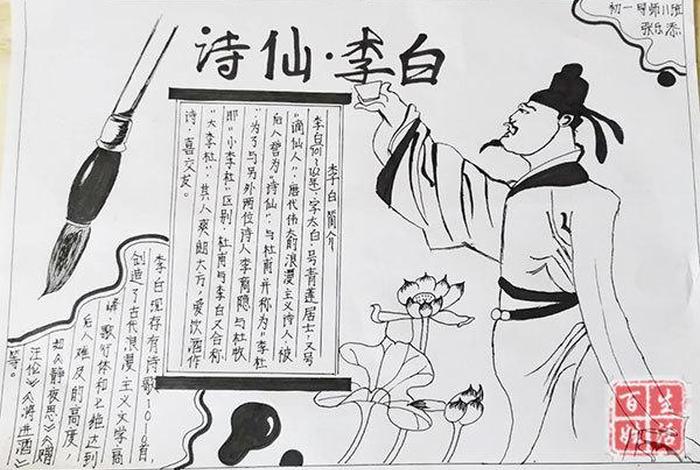 诗仙·李白
李白简介
李白(701-762年),字太白,号青莲居士,又号
“谪仙人”,唐代伟大的浪漫主义诗人,被
后人誉为“诗仙”,与杜甫并称为“李杜
”为了与另外两位诗人李商隐与杜牧
即“小李杜”区别,杜甫与李白又合称
“大李杜”,其人爽朗大方,爱饮酒作
诗,喜交友。
李白现存有诗歌1010首,
创造了古代浪漫主义文学高
峰,歌行体和七绝达到
后人难及的高度,
如《静夜思》《赠
汪伦》《将进酒》
等。
张乐添
生活
百科